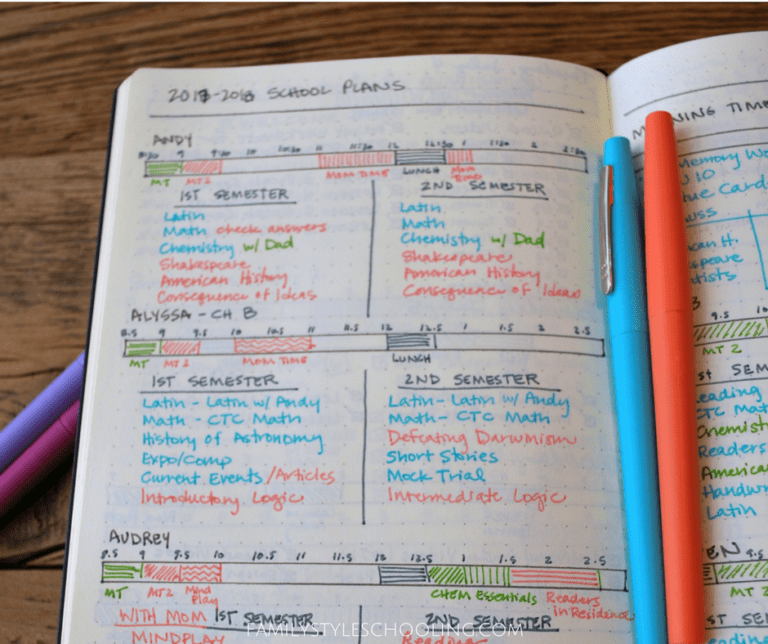 2018-2018 SCHOOL PLANS
ANDY
8:30 9 9:30 10 10:30 11 11:30 12 12:30 1 1:30 2 2:30
MT MT2 MOM TIME LUNCH Mom Time
1ST SEMESTER
Latin
Math check answers
Chemistry w/ Dad
Shakespeare
American History
Consequence of Ideas
2ND SEMESTER
Latin
Math
Chemistry w/ Dad
Shakespeare
American History
Consequence of Ideas
ALYSSA - CH B
8.5 9 9.5 10 10.5 11 11.5 12 12.5 1 1.5 2 2.5
MT MT2 MOM TIME LUNCH
1ST SEMESTER
Latin - Latin w/ Andy
Math - CTC Math
History of Astronomy
Expo/Comp
Current Events/Articles
Introductory Logic
2ND SEMESTER
Latin - Latin w/ Andy
Math - CTC Math
Defeating Darwinism
Short Stories
Mock Trial
Intermediate Logic
AUDREY
8.5 9 9.5 10 10.5 11 11.5 12 12.5 1 1.5 2 2.5
MT MT2 Mind Play CHEM Essentials Readers in Residence
WITH MOM 1ST SEMESTER
MINDPLAY
2ND SEMESTER
Readings
NING TIME
Memory Wo
J 10
ue Card
wss
can H.
speare
tists
9.5 10
MT 2
st SEM
eading
CTC Mat
Chemist
Readers
America
Handwr
Latin
EN 9.5
MT 2
ST SE
eadin
FAMILYSTYLESCHOOLING.COM